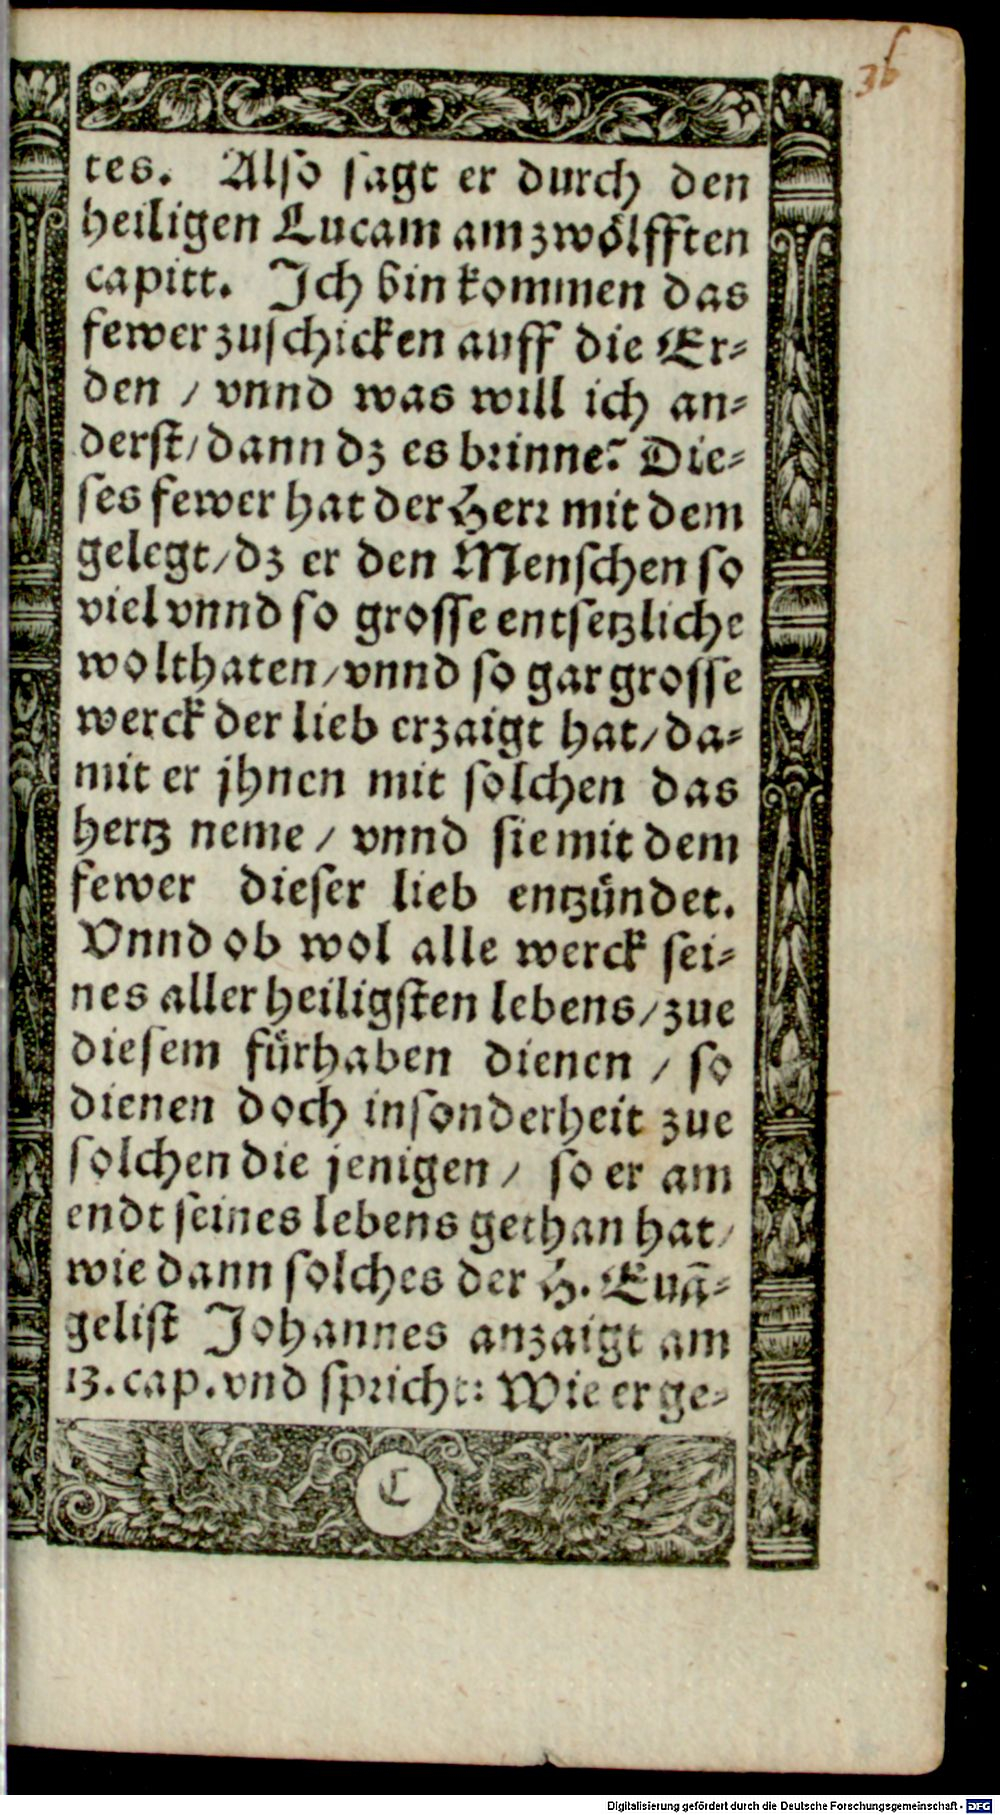 36
tes. Also sagt er durch den
heiligen Lucam am zwölfften
capitt. Ich bin kommen das
fewer zuschicken auff die Er-
den / vnnd was will ich an-
derst / dann dz es brinne? Die-
ses fewer hat der Herr mit dem
gelegt / dz er den Menschen so
viel vnnd so grosse entsetzliche
wolthaten / vnnd so gar grosse
werck der lieb erzaigt hat / da-
mit er jhnen mit solchen das
hertz neme / vnnd sie mit dem
fewer dieser lieb entzündet.
Vnnd ob wol alle werck sei-
nes aller heiligsten lebens / zue
diesem fürhaben dienen / so
dienen doch insonderheit zue
solchen die jenigen / so er am
endt seines lebens gethan hat /
wie dann solches der H. Euā-
gelist Johannes anzaigt am
13. cap. vnd spricht: Wie er ge-
C
Digitalisierung gefördert durch die Deutsche Forschungsgemeinschaft - DFG